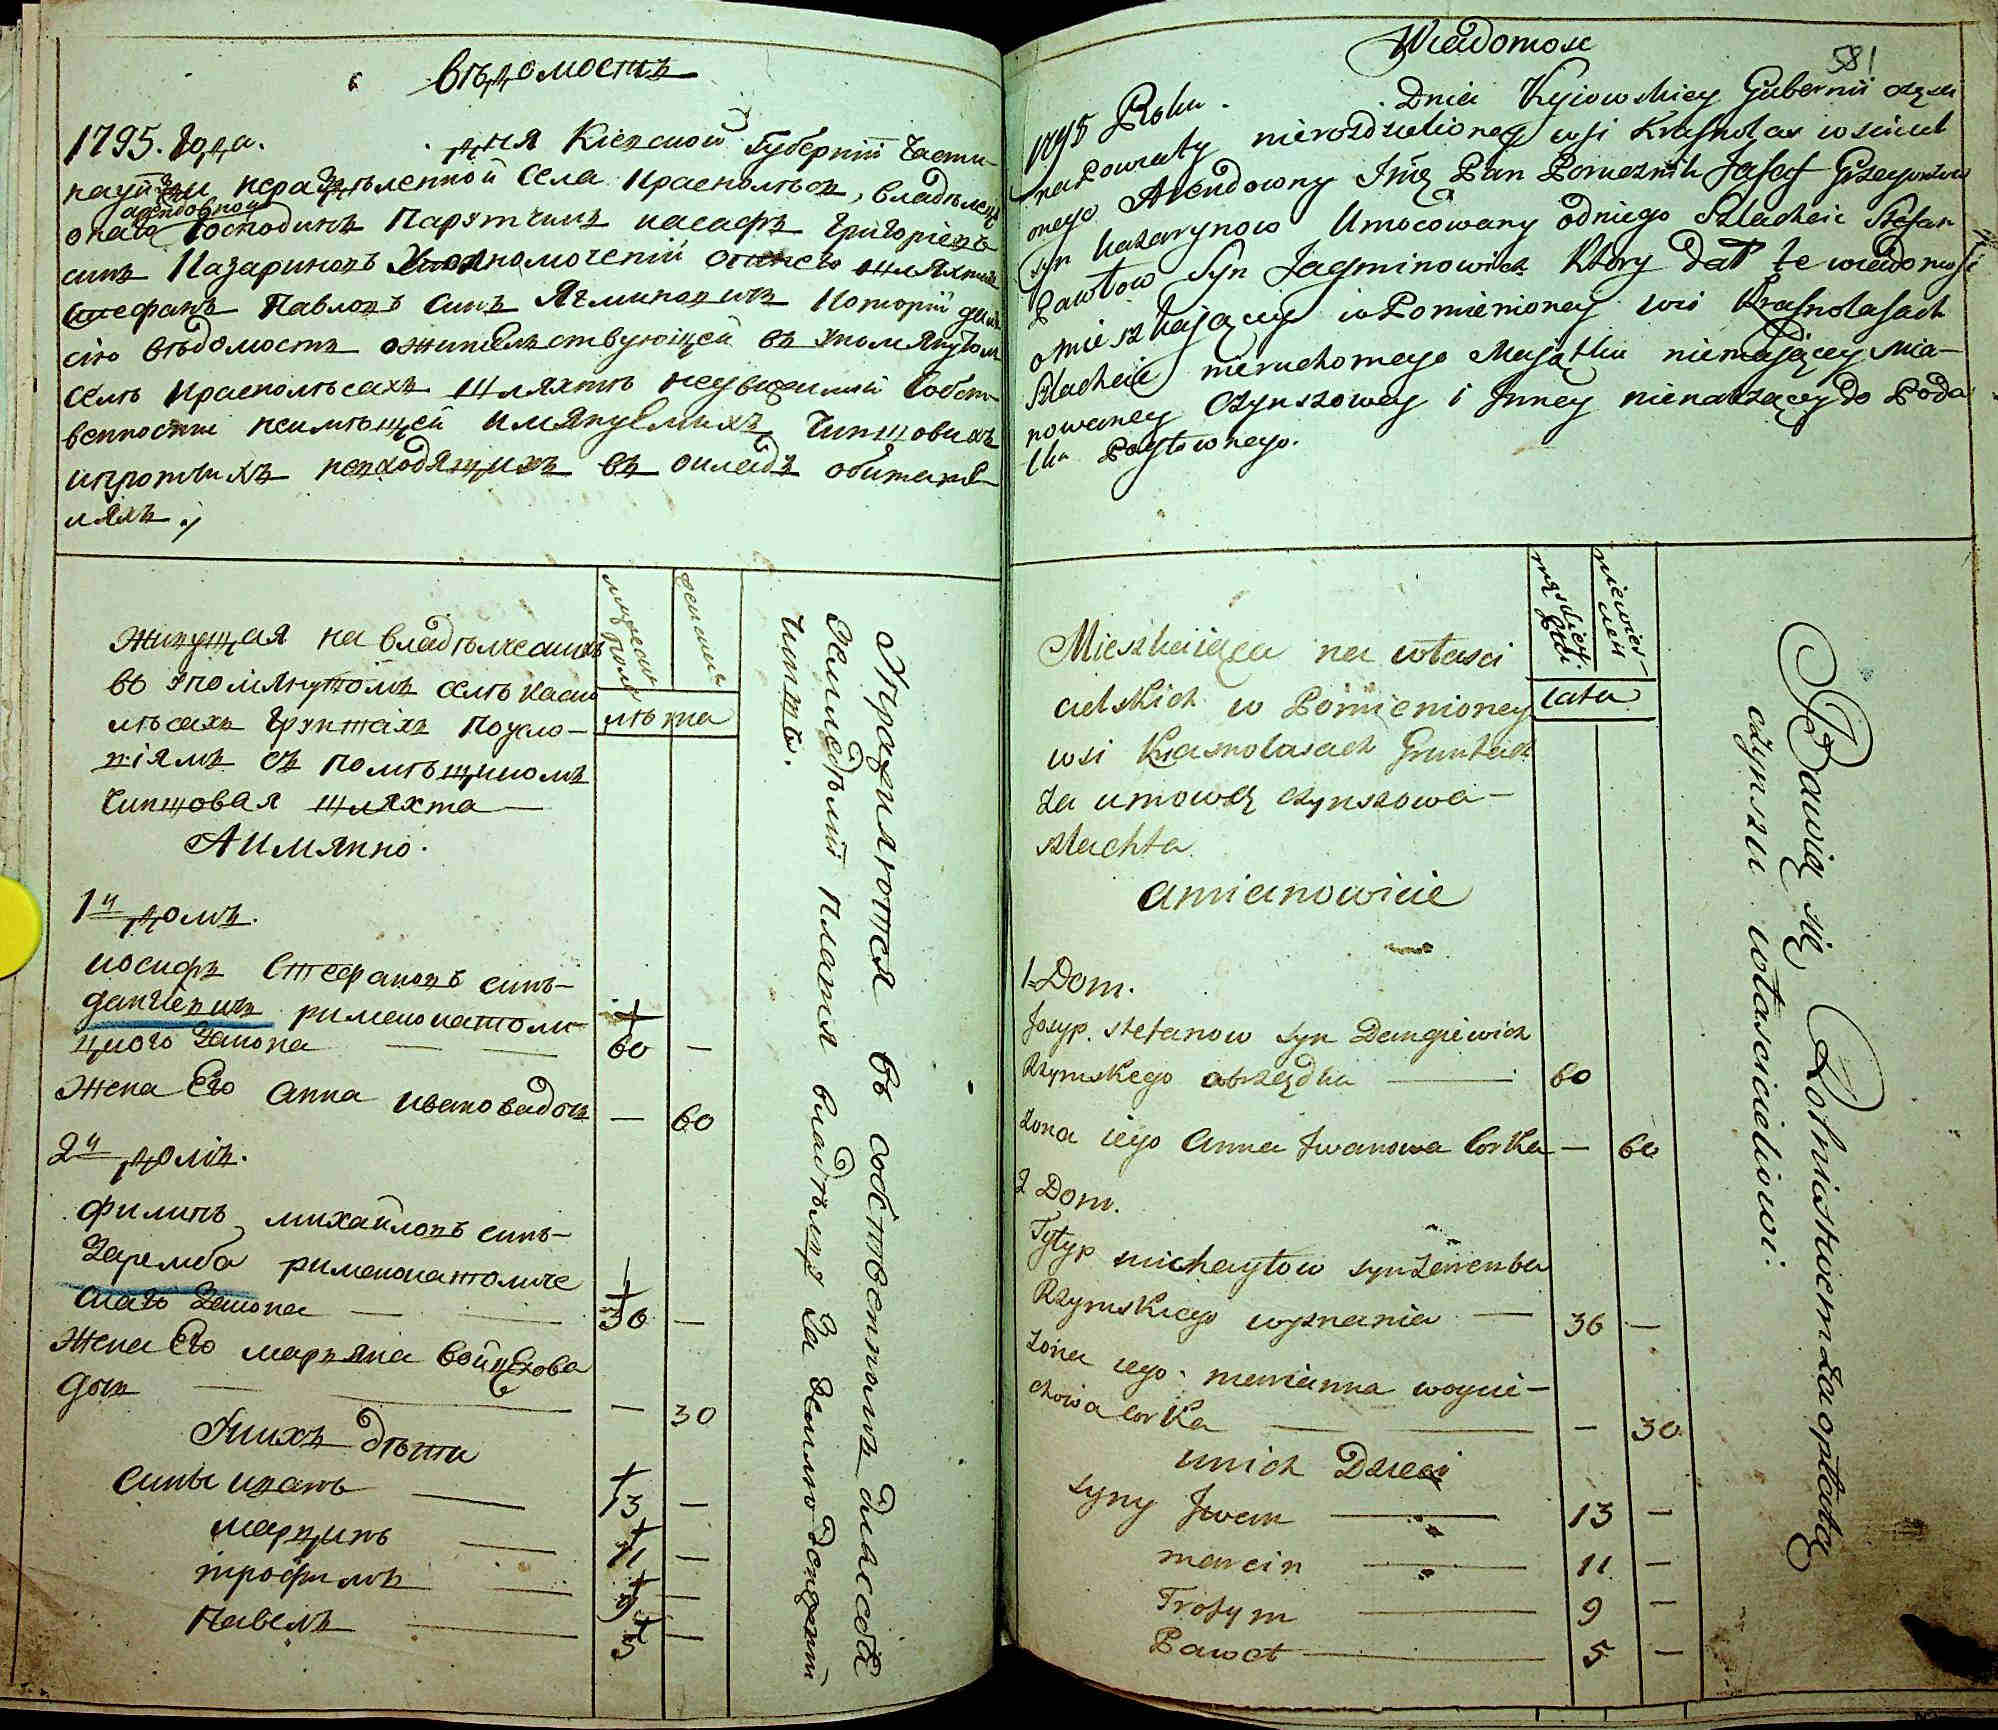 Вѣдомость
1795. Года. дня Кіевской Губерніи части
неразделенной села Краснолѣсъ, владѣлецъ
арендовной
онаго Господинъ Поручикъ иасафъ Григоріевъ
синъ Назариновъ Уполномоченій отнего шляхтичъ
стефанъ Павловъ синъ Ягминовичъ Которій далъ
сію вѣдомость ожительствующей въ упомянутомъ
селѣ Краснолѣсахъ шляхтѣ недвижимой собст-
венности неимѣющей имянуемихъ Чиншовихъ
ипротчихъ невходящихъ въ окладъ обитате-
ляхъ
Живущая на владѣлческихъ
во упомянутомъ селѣ Красно
лѣсахъ грунтахъ поусло-
віямъ съ помѣщикомъ
Чиншовая шляхта
Аимянно.
мужеска полу
женска
лѣта
1й домъ.
иосифъ Стефановъ синъ-
Дангиевичъ римскокатоли
цкого закона 60 —
жена Его Анна ивановадочь — 60
2й домъ.
Филипъ михайловъ синъ-
Заремба римскокатоличе
скаго закона 36 —
жена Его марьяна Войцехова
дочь — 30
Унихъ дѣти
сины иванъ 13 —
марцинъ 11 —
трофимъ 9 —
Павелъ 5 —
Упражняются въ собственномъ дилисобѣ
Земледѣліи платя владѣлцу За Землю денежній
чиншъ.
581
Wiadomosc
1795 Roku. Dnia Kyiowskiey Gubernii częsci
napowiaty nierozdzielioney wsi Krasnolas wsciciel
onego Arendowny Jmę Pan Porucznik Jasaf Grzegorzow
syn Nazarynow Umocowany odniego Szlachcic Stefan
Pawłow Syn Jagminowicz Ktory dał te wiadomosc
omieszkaiącey w Pomienioney wsi Krasnolasach
Szlachcie nieruchomego Maiątku niemaiącey mia-
nowaney Czynszowey i Jnney nienalezącey do Poda
tku Pogłownego.
męskiey płci
niewies-
ciey
Lata
Mieszkaiąca na własci
cielskich w Pomienioney
wsi Krasnolasach Gruntach
za umową czynszowa-
szlachta
amianowicie
1 Dom.
Josyp. stefanow syn Dangiewich
Rzymskego obrządku 60
żona iego Anna Jwanowa corka — 60
2 Dom.
Fylyp michayłow syn Zaremba
Rzymskiego wyznania — 36 —
żona iego. marianna woycie-
chowa corka — 30
unich Dzieci
syny Jwan 13 —
marcin 11 —
Trofym 9 —
Paweł 5 —
Bawią się Rolnictwem zaopłatą
czynszu własciceliowi.